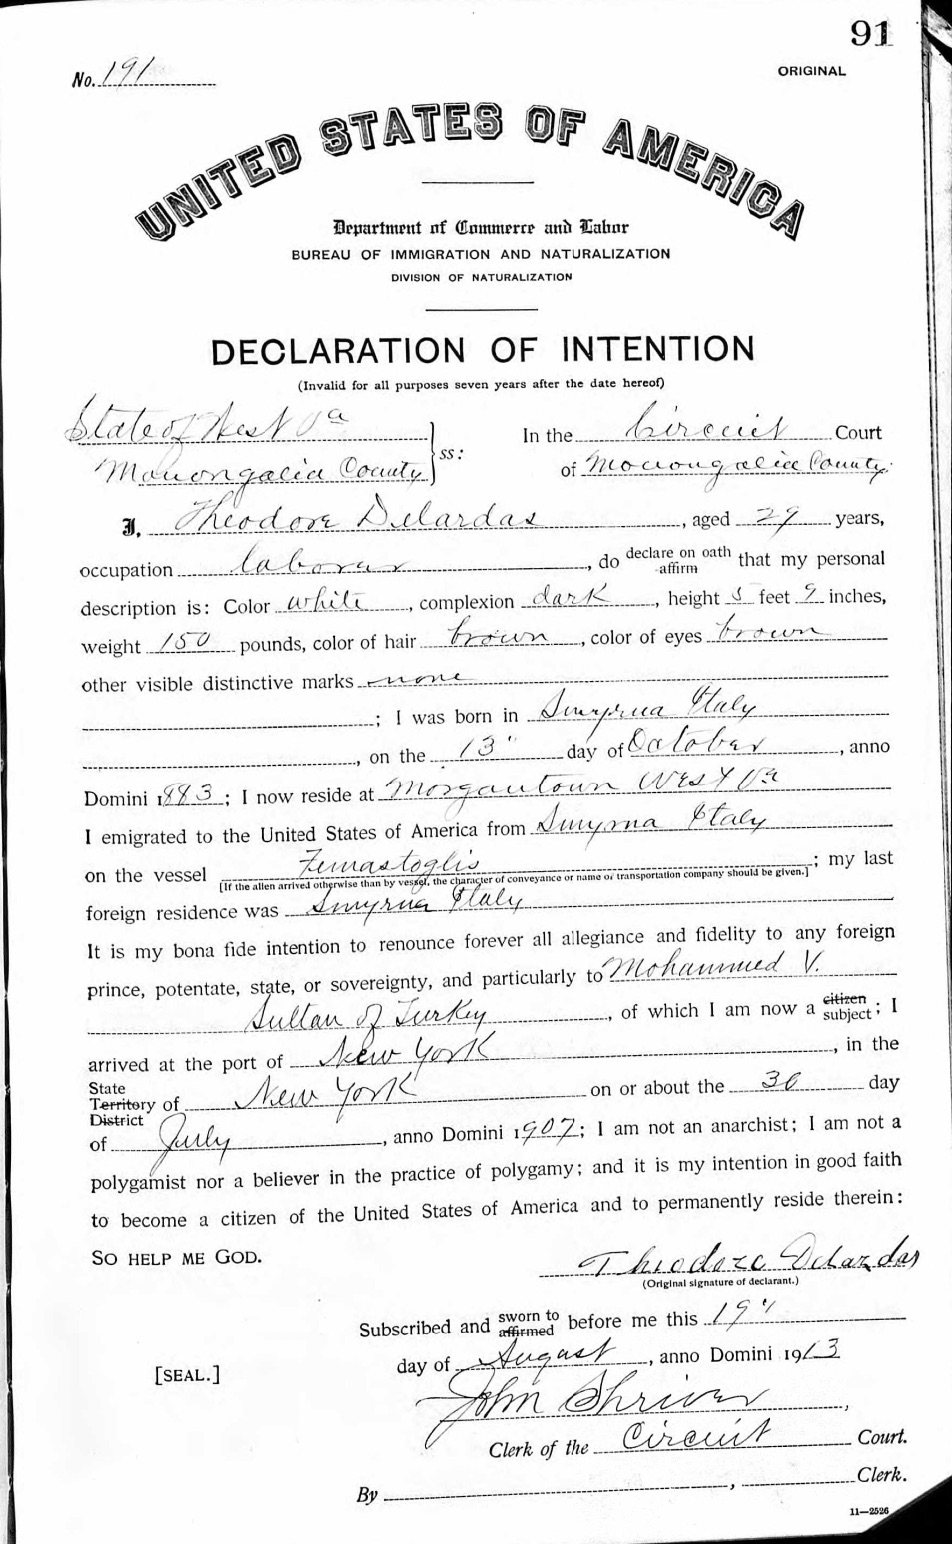 91
No. 191
ORIGINAL
UNITED STATES OF AMERICA
Department of Commerce and Labor
BUREAU OF IMMIGRATION AND NATURALIZATION
DIVISION OF NATURALIZATION
DECLARATION OF INTENTION
(Invalid for all purposes seven years after the date hereof)
State of West Va
Monongalia County ss:
In the Circuit Court
of Monongalia County
I, Theodore Delardas, aged 29 years,
occupation laborer, do declare on oath affirm that my personal
description is: Color white, complexion dark, height 5 feet 9 inches,
weight 150 pounds, color of hair brown, color of eyes brown
other visible distinctive marks none
; I was born in Smyrna Italy
, on the 13" day of October, anno
Domini 1883; I now reside at Morgantown West Va
I emigrated to the United States of America from Smyrna Italy
on the vessel Temastoglis; my last
[If the alien arrived otherwise than by vessel, the character of conveyance or name of transportation company should be given.]
foreign residence was Smyrna Italy
It is my bona fide intention to renounce forever all allegiance and fidelity to any foreign
prince, potentate, state, or sovereignty, and particularly to Mohammed V.
Sultan of Turkey, of which I am now a citizen subject; I
arrived at the port of New York, in the
State Territory District of New York on or about the 30 day
of July, anno Domini 1907; I am not an anarchist; I am not a
polygamist nor a believer in the practice of polygamy; and it is my intention in good faith
to become a citizen of the United States of America and to permanently reside therein:
SO HELP ME GOD.
Theodore Delardas
(Original signature of declarant.)
Subscribed and sworn to affirmed before me this 19"
day of August, anno Domini 1913
[SEAL.]
John Shriver,
Clerk of the Circuit Court.
By , Clerk.
11—2526